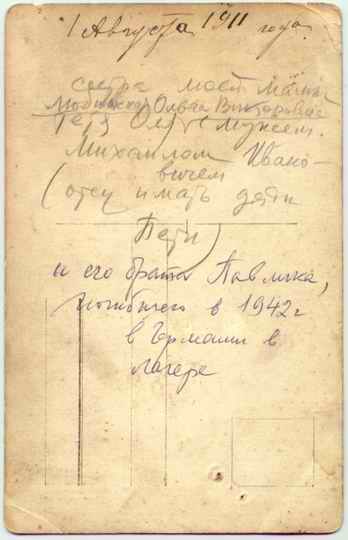 1 Августа 1911 года.
сестра моей мамы
Ольга Викторовна
Тетя Оля с мужем.
Михаилом Ивано-
вичем
(отец и мать дяди
Пети)
и его брата Павлика,
погибшего в 1942 г
в Германии в
лагере